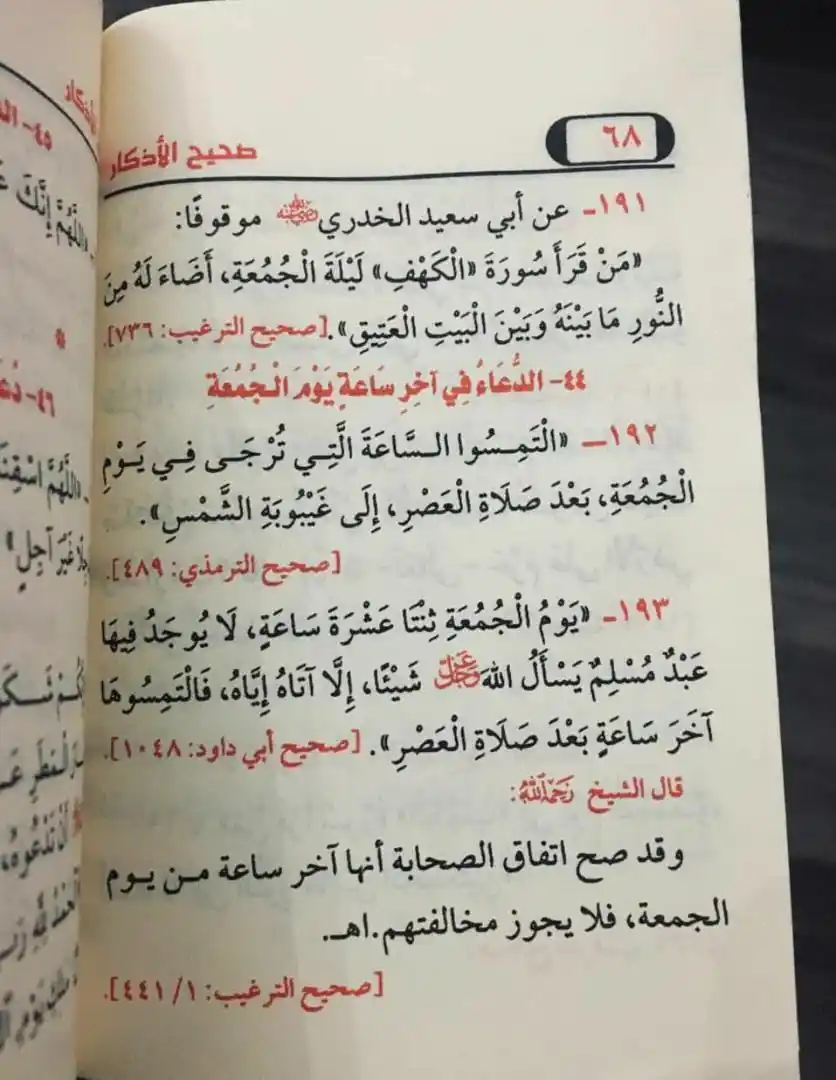 ٦٨
صحيح الأذكار
١٩١- عن أبي سعيد الخدري رضي الله عنه موقوفًا:
«مَنْ قَرَأَ سُورَةَ «الْكَهْفِ» لَيْلَةَ الْجُمُعَةِ، أَضَاءَ لَهُ مِنَ
النُّورِ مَا بَيْنَهُ وَبَيْنَ الْبَيْتِ الْعَتِيقِ». [صحيح الترغيب: ٧٣٦].
٤٤- الدُّعَاءُ فِي آخِرِ سَاعَةٍ يَوْمَ الْجُمُعَةِ
١٩٢- «الْتَمِسُوا السَّاعَةَ الَّتِي تُرْجَى فِي يَوْمِ
الْجُمُعَةِ، بَعْدَ صَلَاةِ الْعَصْرِ، إِلَى غَيْبُوبَةِ الشَّمْسِ».
[صحيح الترمذي: ٤٨٩].
١٩٣- «يَوْمُ الْجُمُعَةِ ثِنْتَا عَشْرَةَ سَاعَةٍ، لَا يُوجَدُ فِيهَا
عَبْدٌ مُسْلِمٌ يَسْأَلُ اللهَ عَزَّ وَجَلَّ شَيْئًا، إِلَّا آتَاهُ إِيَّاهُ، فَالْتَمِسُوهَا
آخَرَ سَاعَةٍ بَعْدَ صَلَاةِ الْعَصْرِ». [صحيح أبي داود: ١٠٤٨].
قال الشيخ رَحِمَهُ اللَّهُ:
وقد صح اتفاق الصحابة أنها آخر ساعة من يوم
الجمعة، فلا يجوز مخالفتهم.اهـ.
[صحيح الترغيب: ١/ ٤٤١].